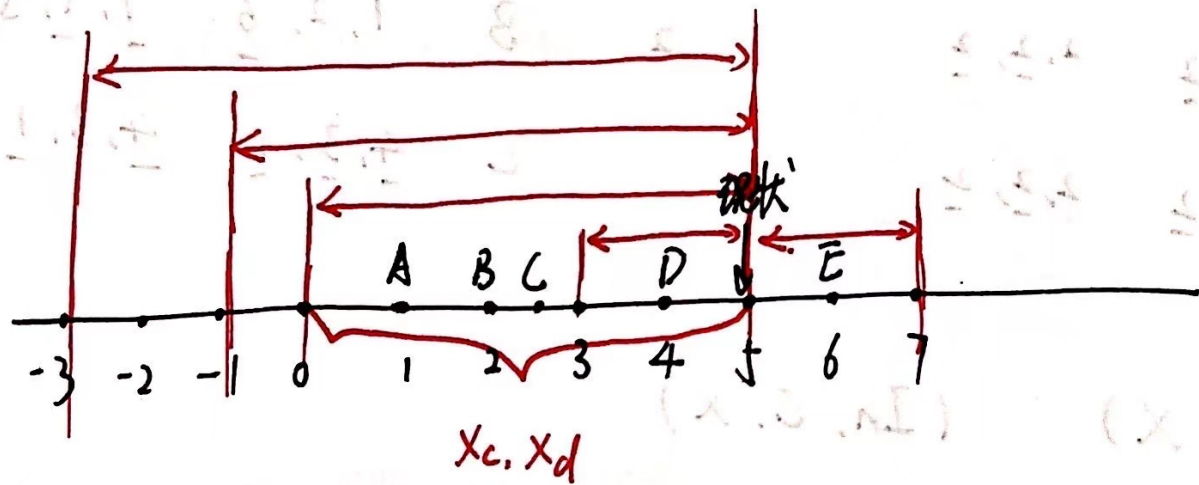 现状
A B C D E
-3 -2 -1 0 1 2 3 4 5 6 7
Xc, Xd